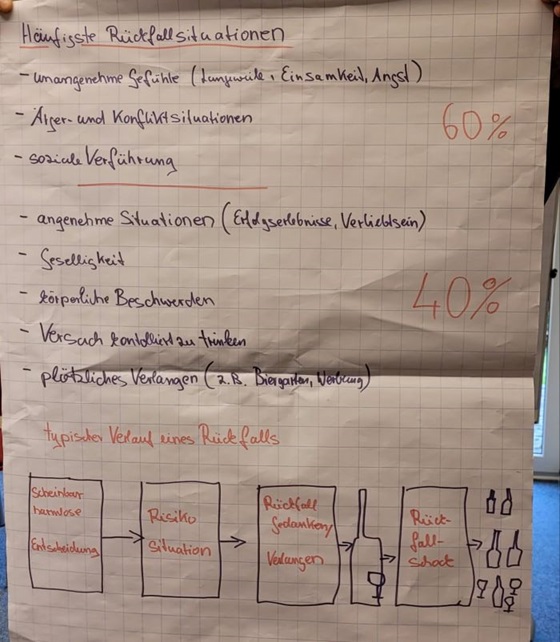 Häufigste Rückfallsituationen
- unangenehme Gefühle (Langeweile, Einsamkeit, Angst)
- Ärger- und Konfliktsituationen
60%
- soziale Verführung
- angenehme Situationen (Erfolgserlebnisse, Verliebtsein)
- Geselligkeit
- körperliche Beschwerden
40%
- Versuch kontrolliert zu trinken
- plötzliches Verlangen (z.B. Biergarten, Werbung)
typischer Verlauf eines Rückfalls
Scheinbar
harmlose
Entscheidung
Risiko
Situation
Rückfall
Gedanken/
Verlangen
Rück-
fall-
schock